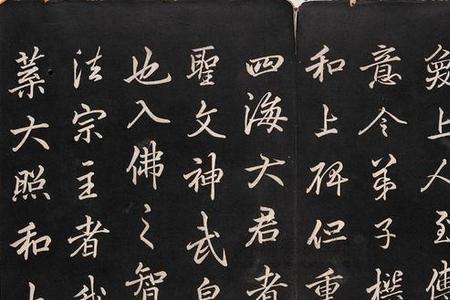 上人至傳
意令弟子撰
和上碑但重
四海大君者
聖文神武皇
也入佛之智
法宗主者我
葉大照和上